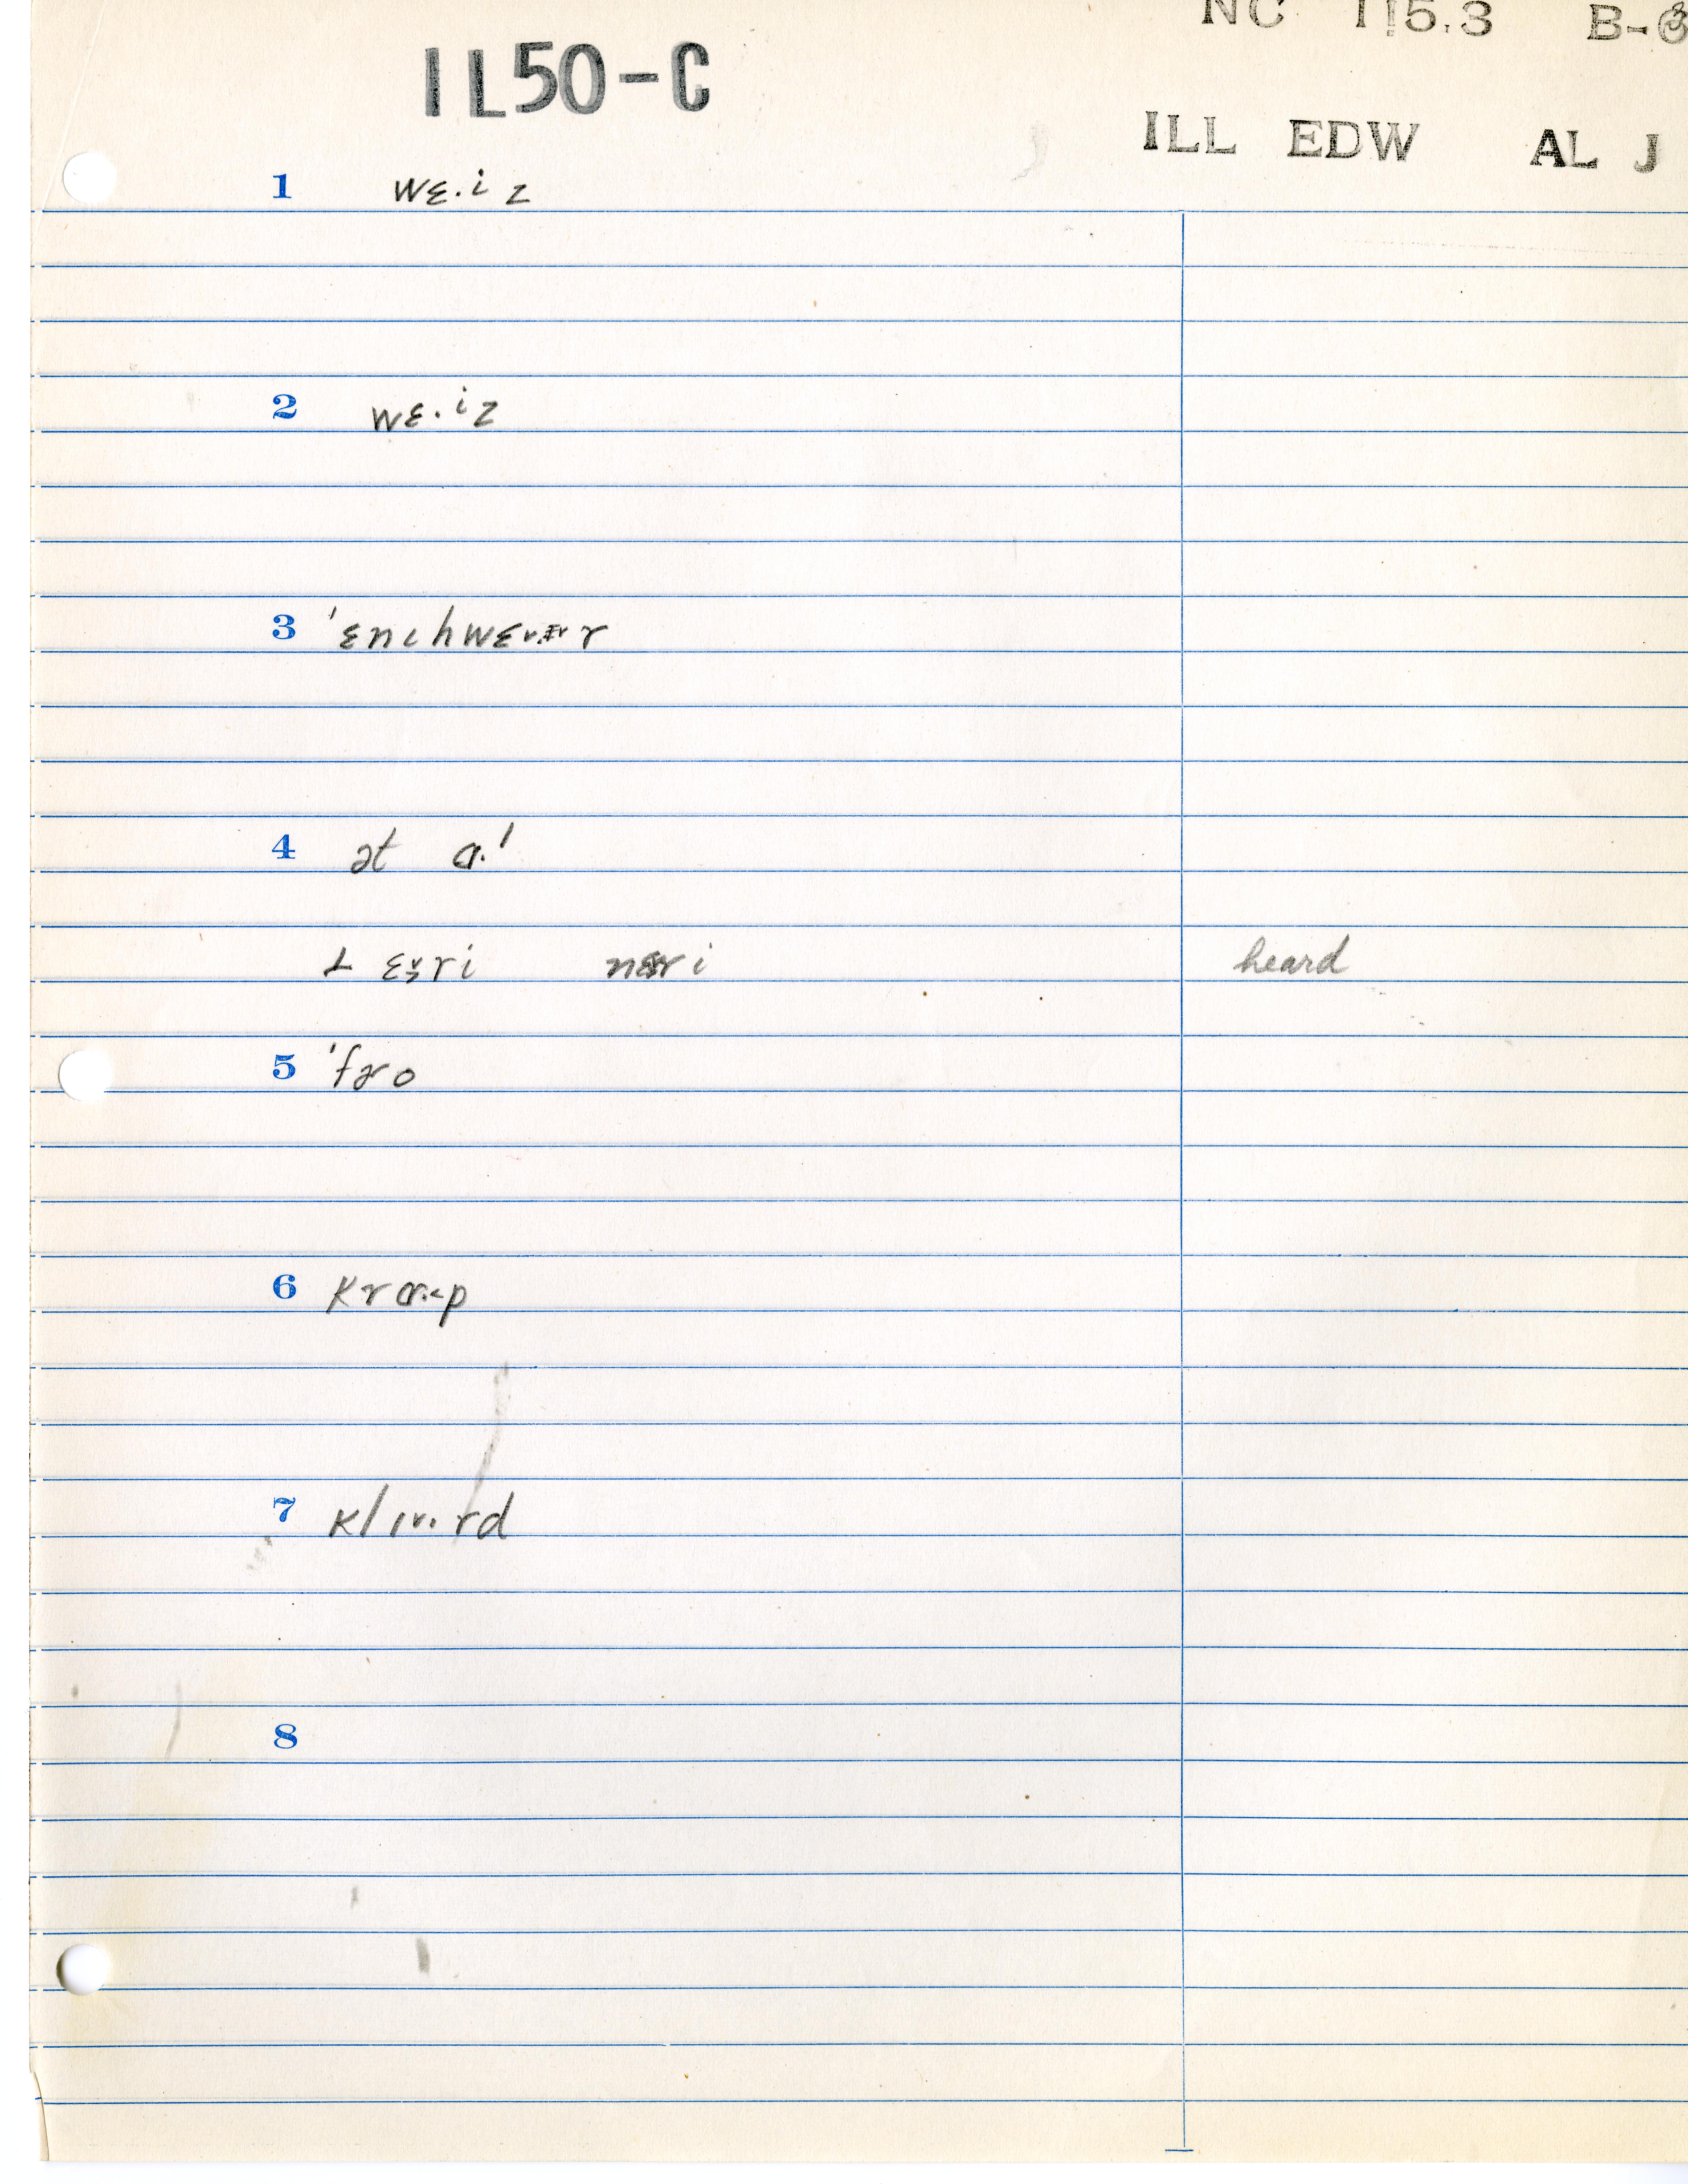 NC 115.3 B-
1L50-C
ILL EDW AL J
1 wɛ·iz
2 wɛ·iz
3 'ɛnɪhwɛr
4 ət ɑ·l
ɛri nɛri heard
5 'fɚo
6 krɑ·p
7 klɪ·rd
8